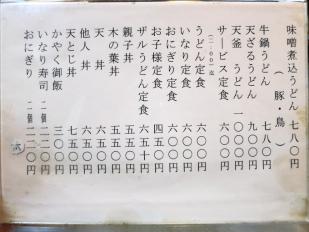 味噌煮込うどん 七八〇
(豚・鳥)
牛鍋うどん 七八〇
天ざるうどん 九〇〇
天釜うどん 一〇〇〇
サービス定食 六〇〇
うどん定食 六〇〇
いなり定食 六〇〇
おにぎり定食 六〇〇
お子様定食 四五〇
ザルうどん定食 六五〇
親子丼 五五〇
木の葉丼 五五〇
天丼 六五〇
他人丼 六五〇
天とじ丼 七五〇
かやく御飯 三〇〇
いなり寿司 二個 一二〇
おにぎり 二個 二二〇